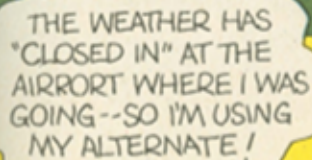 THE WEATHER HAS
"CLOSED IN" AT THE
AIRRORT WHERE I WAS
GOING--SO I'M USING
MY ALTERNATE!